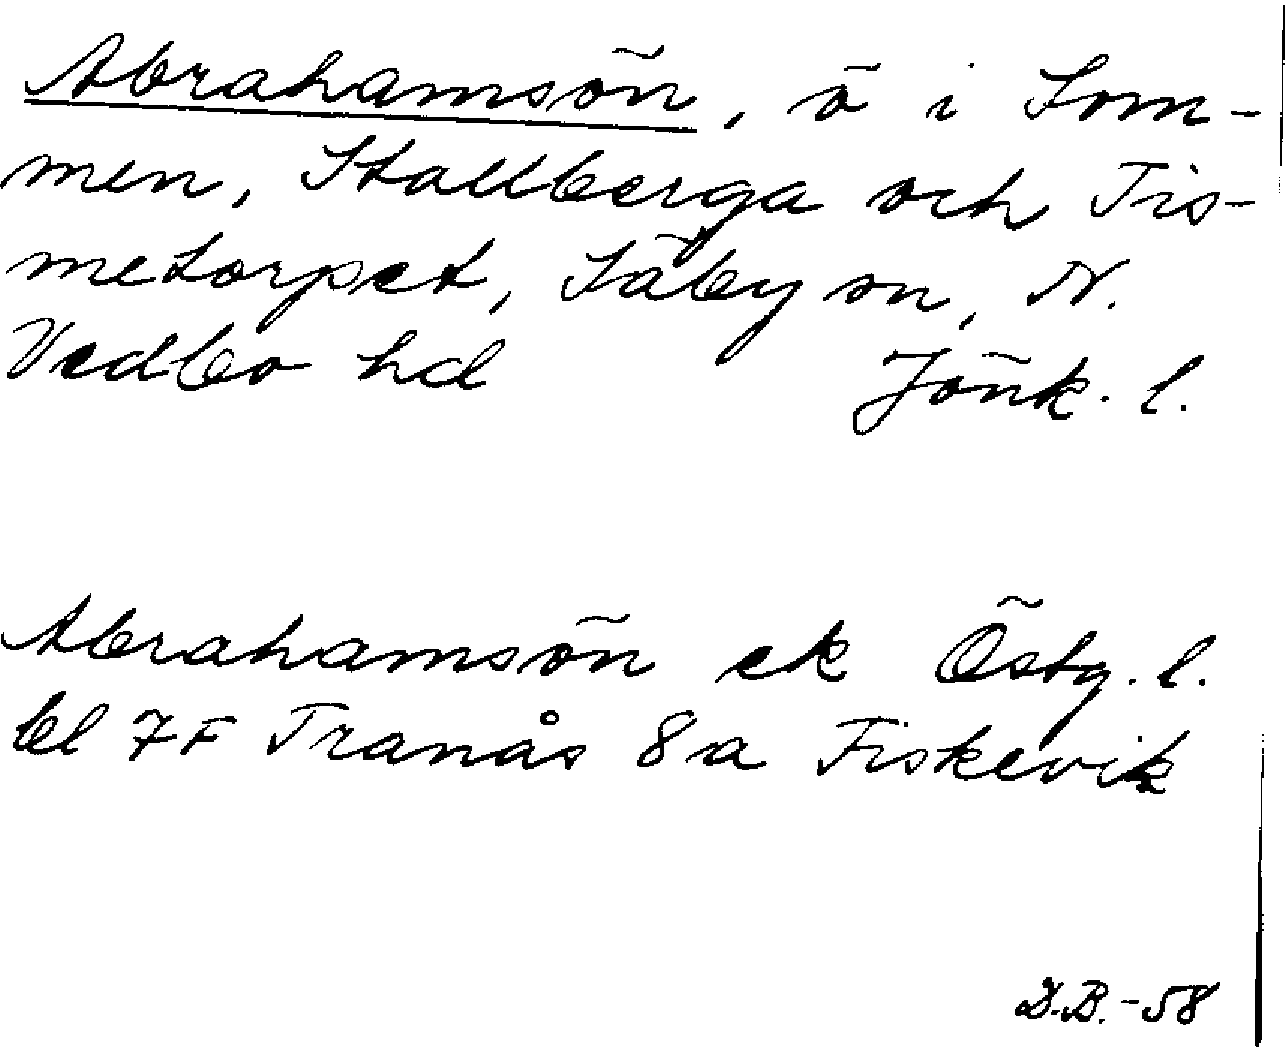 Abrahamsön, ö i Som-
men, Stallberga och Tis-
metorpet, Säby sn, N.
Vedbo hd Jönk. l.
Abrahamsön ek Östg. l.
bl 7F Tranås 8a Fiskevik
D.B. -58